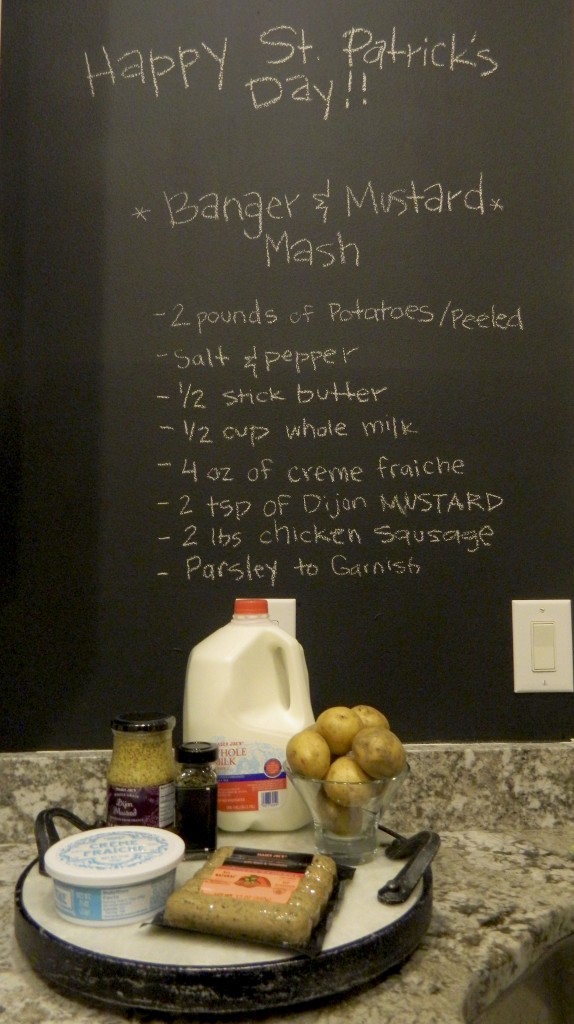 Happy St. Patrick's
Day!!
* Banger & Mustard *
Mash
- 2 pounds of Potatoes/peeled
- Salt & pepper
- 1/2 stick butter
- 1/2 cup whole milk
- 4 oz of creme fraiche
- 2 tsp of Dijon MUSTARD
- 2 lbs chicken Sausage
- Parsley to Garnish
WHOLE
MILK
Dijon
Mustard
CRÈME
FRAICHE